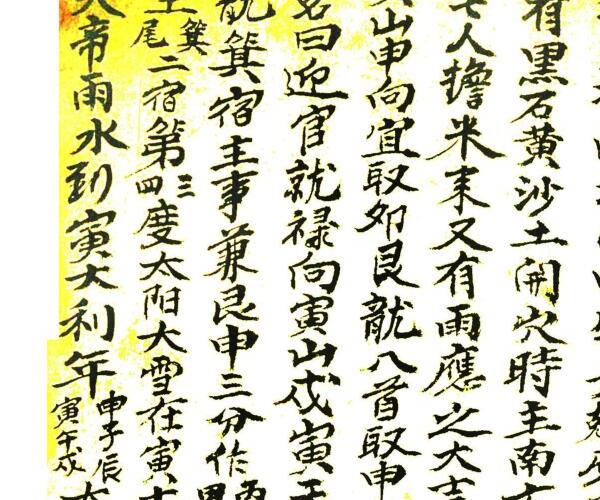 有黑石黄沙土開穴時主南
七人擔米来又有雨應之大吉
山申向宜取夘艮龍八首取申
名曰迎官就禄向寅山戊寅
龍箕宿主事兼艮申三分作
箕尾二宿第三四度太阳大雪在寅
帝雨水到寅大利年申子辰寅午戌